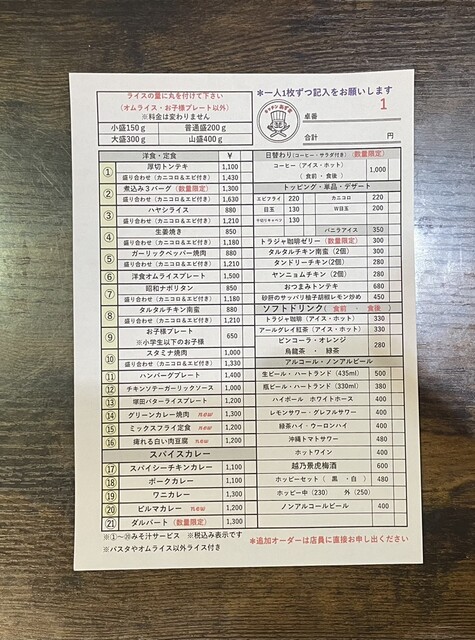 ライスの量に丸を付けて下さい
(オムライス・お子様プレート以外)
※料金は変わりません
小盛150g 普通盛200g
大盛300g 山盛400g
*一人1枚ずつ記入をお願いします
1
卓番
合計 円
洋食・定食 ¥
① 厚切トンテキ 1,100
盛り合わせ(カニコロ&エビ付き) 1,430
② 煮込み3バーグ(数量限定) 1,300
盛り合わせ(カニコロ&エビ付き) 1,630
③ ハヤシライス 880
盛り合わせ(カニコロ&エビ付き) 1,210
④ 生姜焼き 850
盛り合わせ(カニコロ&エビ付き) 1,180
⑤ ガーリックペッパー焼肉 880
盛り合わせ(カニコロ&エビ付き) 1,210
⑥ 洋食オムライスプレート 1,500
⑦ 昭和ナポリタン 850
盛り合わせ(カニコロ&エビ付き) 1,180
⑧ タルタルチキン南蛮 880
盛り合わせ(カニコロ&エビ付き) 1,210
⑨ お子様プレート 650
※小学生以下のお子様
⑩ スタミナ焼肉 1,000
盛り合わせ(カニコロ&エビ付き) 1,330
⑪ ハンバーグプレート 1,400
⑫ チキンソテーガーリックソース 1,000
⑬ 塚田バターライス定食 1,200
⑭ グリーンカレー焼肉 new 1,300
⑮ ミックスフライ定食 new 1,200
⑯ 痺れる白い肉豆腐 new 1,200
スパイスカレー
⑰ スパイシーチキンカレー 1,100
⑱ ポークカレー 1,100
⑲ ワニカレー 1,300
⑳ ビルマカレー new 1,200
㉑ ダルバート(数量限定) 1,300
日替わり(コーヒー・サラダ付き)(数量限定)
コーヒー(アイス・ホット) 1,000
(食前・食後)
トッピング・単品・デザート
エビフライ 220 カニコロ 220
目玉 130 W目玉 200
千切りキャベツ 130
バニラアイス 350
トラジャ珈琲ゼリー(数量限定) 300
タルタルチキン南蛮(2個) 300
タンドリーチキン(2個) 280
ヤンニョムチキン(2個) 280
おつまみトンテキ 680
砂肝のサッパリ柚子胡椒レモン炒め 450
ソフトドリンク(食前・食後)
トラジャ珈琲(アイス・ホット) 330
アールグレイ紅茶(アイス・ホット) 330
ビンコーラ・オレンジ 280
烏龍茶・緑茶
アルコール・ノンアルビール
生ビール・ハートランド(435ml) 500
瓶ビール・ハートランド(330ml) 380
ハイボール ホワイトホース 400
レモンサワー・グレフルサワー 400
緑茶ハイ・ウーロンハイ 400
沖縄トマトサワー 480
ホットワイン 400
越乃景虎梅酒 600
ホッピーセット(黒・白) 480
ホッピー中(230) 外(250)
ノンアルコールビール 400
※①~⑳みそ汁サービス ※税込み表示です
※パスタやオムライス以外ライス付き
*追加オーダーは店員に直接お申し出ください